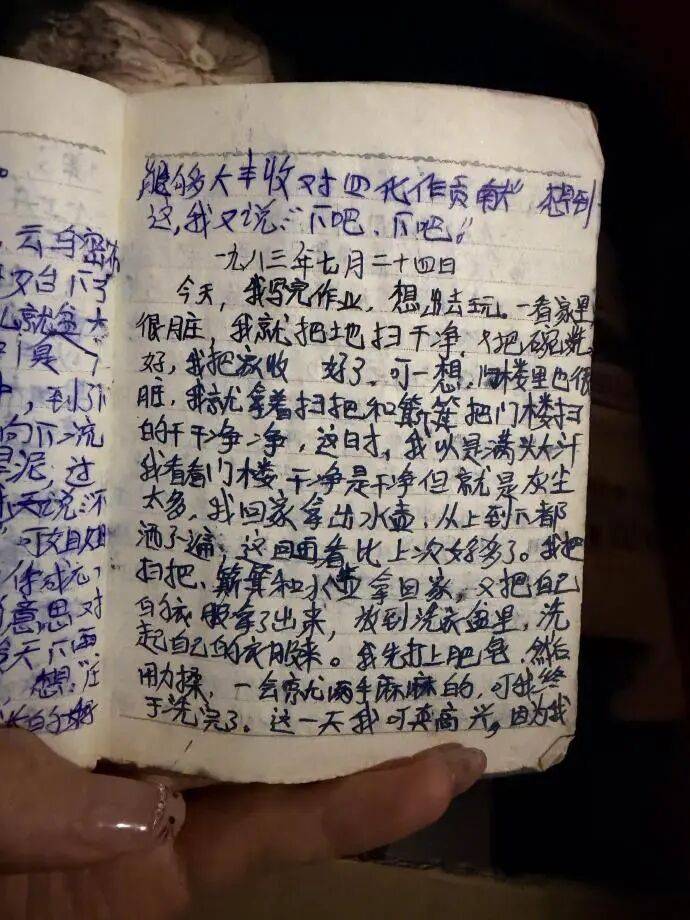 。
云乌密布
又白下了
么就鱼大
到下
向下流
是泥，过
天说："不
可姐姐
意思对
今天下雨
想："庄
能够大丰收对四化作贡献"想到
这，我又说："下吧、下吧"
一九八三年七月二十四日
今天，我写完作业，想出去玩。一看家里
很脏，我就把地扫干净，又把碗洗
好，我把家收 好了、可一想，门楼里也很
脏，我就拿着扫把和簸箕把门楼扫
的干干净净，这时，我以是满头大汗
我看看门楼干净是干净但就是灰尘
太多，我回家拿出水壶，从上到下都
洒了遍，这回再看比上次好多了。我把
扫把、簸箕和水壶拿回家，又把自己
的衣服拿了出来，放到洗衣盆里，洗
起自己的衣服来。我先打上肥皂，然后
用力揉，一会就两手麻麻的，可我终
于洗完了。这一天我可真高兴，因为我